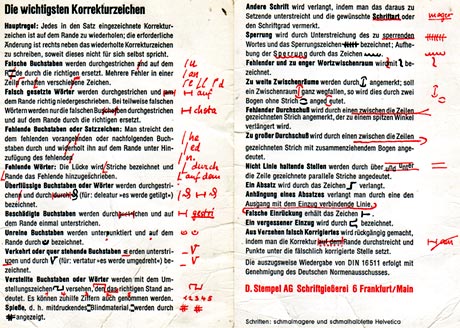 Die wichtigsten Korrekturzeichen
Hauptregel: Jedes in das Satz eingezeichnete Korrektur-
zeichen ist auf dem Rande zu wiederholen; die erforderliche
Änderung ist rechts neben das wiederholte Korrekturzeichen
zu schreiben, soweit dieses nicht für sich selbst spricht.
Falsche Buchstaben werden durchgestrichen und auf dem
Rande durch die richtigen ersetzt. Mehrere Fehler in einer
Zeile erhalten verschiedene Zeichen.
Falsch gesetzte Wörter werden durchgestrichen und auf
dem Rand richtig niedergeschrieben. Bei teilweise falschen
Wörtern werden nur die falschen Buchstaben durchgestrichen
und auf dem Rande durch die richtigen ersetzt.
Fehlende Buchstaben oder Satzzeichen: Man streicht den
dem fehlenden vorangehenden oder nachfolgenden Buch-
staben durch und wiederholt ihn auf dem Rande unter Hin-
zufügung des fehlenden
Fehlende Wörter: Die Lücke wird Striche bezeichnet und
Rande das Fehlende hinzugeschrieben.
Überflüssige Buchstaben oder Wörter werden durchgestri-
chen und durch (für: deleatur »es werde getilgt«)
bezeichnet.
Beschädigte Buchstaben werden durchgestrichen und auf
dem Rande einmal unterstrichen.
Unreine Buchstaben werden unterpunktiert und auf dem
Rande durch bezeichnet.
Verkehrt oder quer stehende Buchstaben werden unterstri-
chen und durch V (für: vertatur »es werde umgedreht«) be-
zeichnet.
Verstellte Buchstaben oder Wörter werden mit dem Um-
stellungszeichen versehen, den richtigen Stand an-
deutet. Es können Ziffern auch genommen werden.
Spieße, d. h. mitdruckendes Blindmaterial, werden durch
# angezeigt.
/u
/an
re
aufl
chsta
/he
/ed
/n.
durch
auf dem
gestri
V
V
1 2 3 4 5
# #
Andere Schrift wird verlangt, indem man das daraus zu
Setzende unterstreicht und die gewünschte Schriftart oder
den Schriftgrad vermerkt.
Sperrung wird durch Unterstreichung des zu sperrenden
Wortes und das Sperrungszeichen bezeichnet; Aufhe-
bung der Sperrung durch das Zeichen
Fehlender und zu enger Wortzwischenraum wird mit be-
zeichnet.
Zu weite Zwischenräume werden durch angemerkt; soll
ein Zwischenraum ganz wegfallen, so wird dies durch zwei
Bogen ohne Strich angedeutet.
Fehlender Durchschuß wird durch einen zwischen die Zeilen
gezeichneten Strich angemerkt, der zu einem spitzen Winkel
verlängert wird.
Zu großer Durchschuß wird durch einen zwischen die Zeilen
gezeichneten Strich mit zusammenziehendem Bogen ange-
deutet.
Nicht Linie haltende Stellen werden durch über und unter
die Zeile gezeichnete parallele Striche angedeutet.
Ein Absatz wird durch das Zeichen verlangt.
Anhängung eines Absatzes verlangt man durch eine den
Ausgang mit dem Einzug verbindende Linie.
Falsche Einrückung erhält das Zeichen
Ein vergessener Einzug wird durch bezeichnet.
Aus Versehen falsch Korrigiertes wird rückgängig gemacht,
indem man die Korrektur auf dem Rande durchstreicht und
Punkte unter die fälschlich korrigierte Stelle setzt.
Die auszugsweise Wiedergabe von DIN 16 511 erfolgt mit
Genehmigung des Deutschen Normenausschusses.
mager
D. Stempel AG Schriftgießerei 6 Frankfurt/Main
Schriften: schmalmagere und schmalhalbfette Helvetica